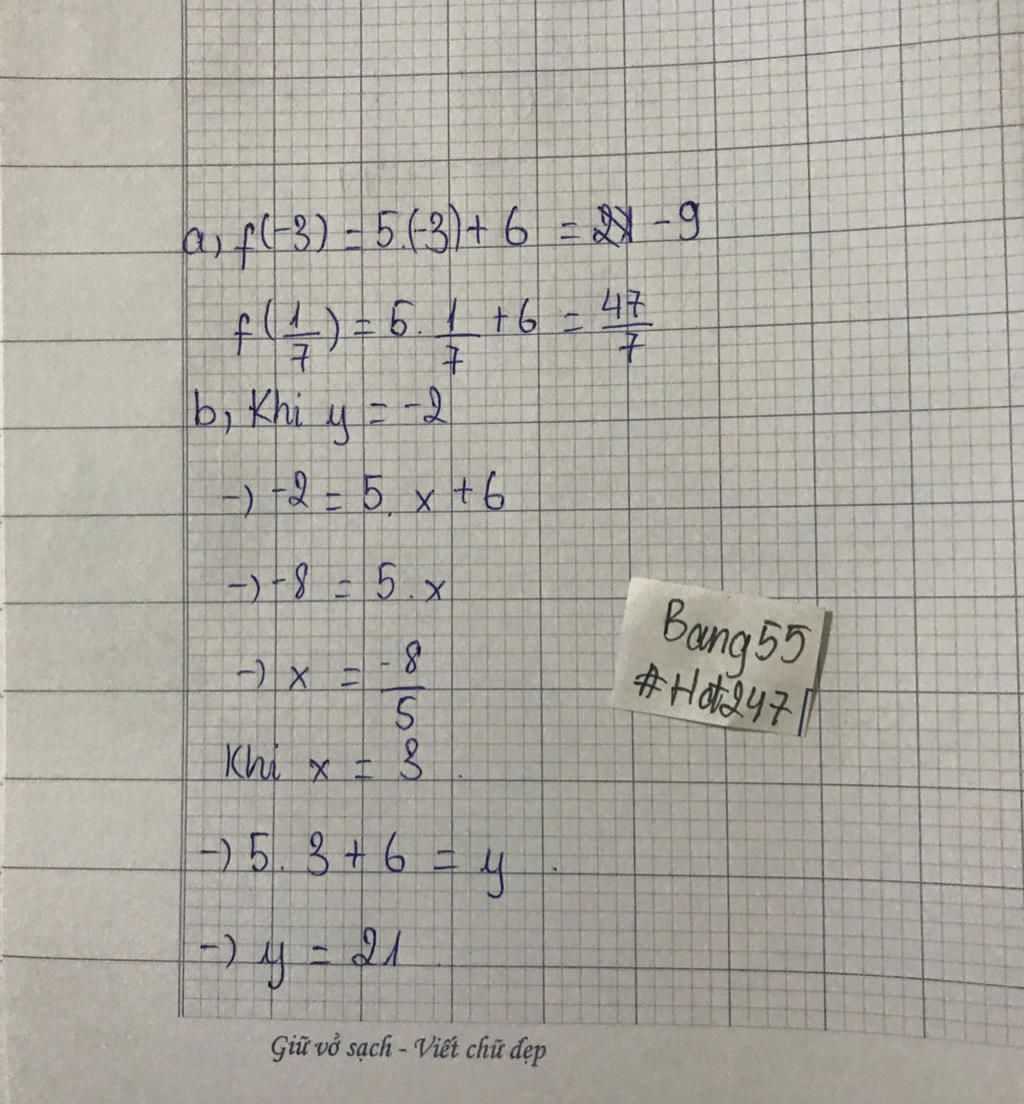 a, f(-3) = 5.(-3) + 6 = -9
f(1/7) = 5. 1/7 + 6 = 47/7
b, Khi y = -2
-) -2 = 5. x + 6
-) -8 = 5 . x
-) x = -8/5
Khi x = 3 .
-) 5. 3 + 6 = y .
-) y = 21
Bang55
#Hot247
Giữ vở sạch - Viết chữ đẹp